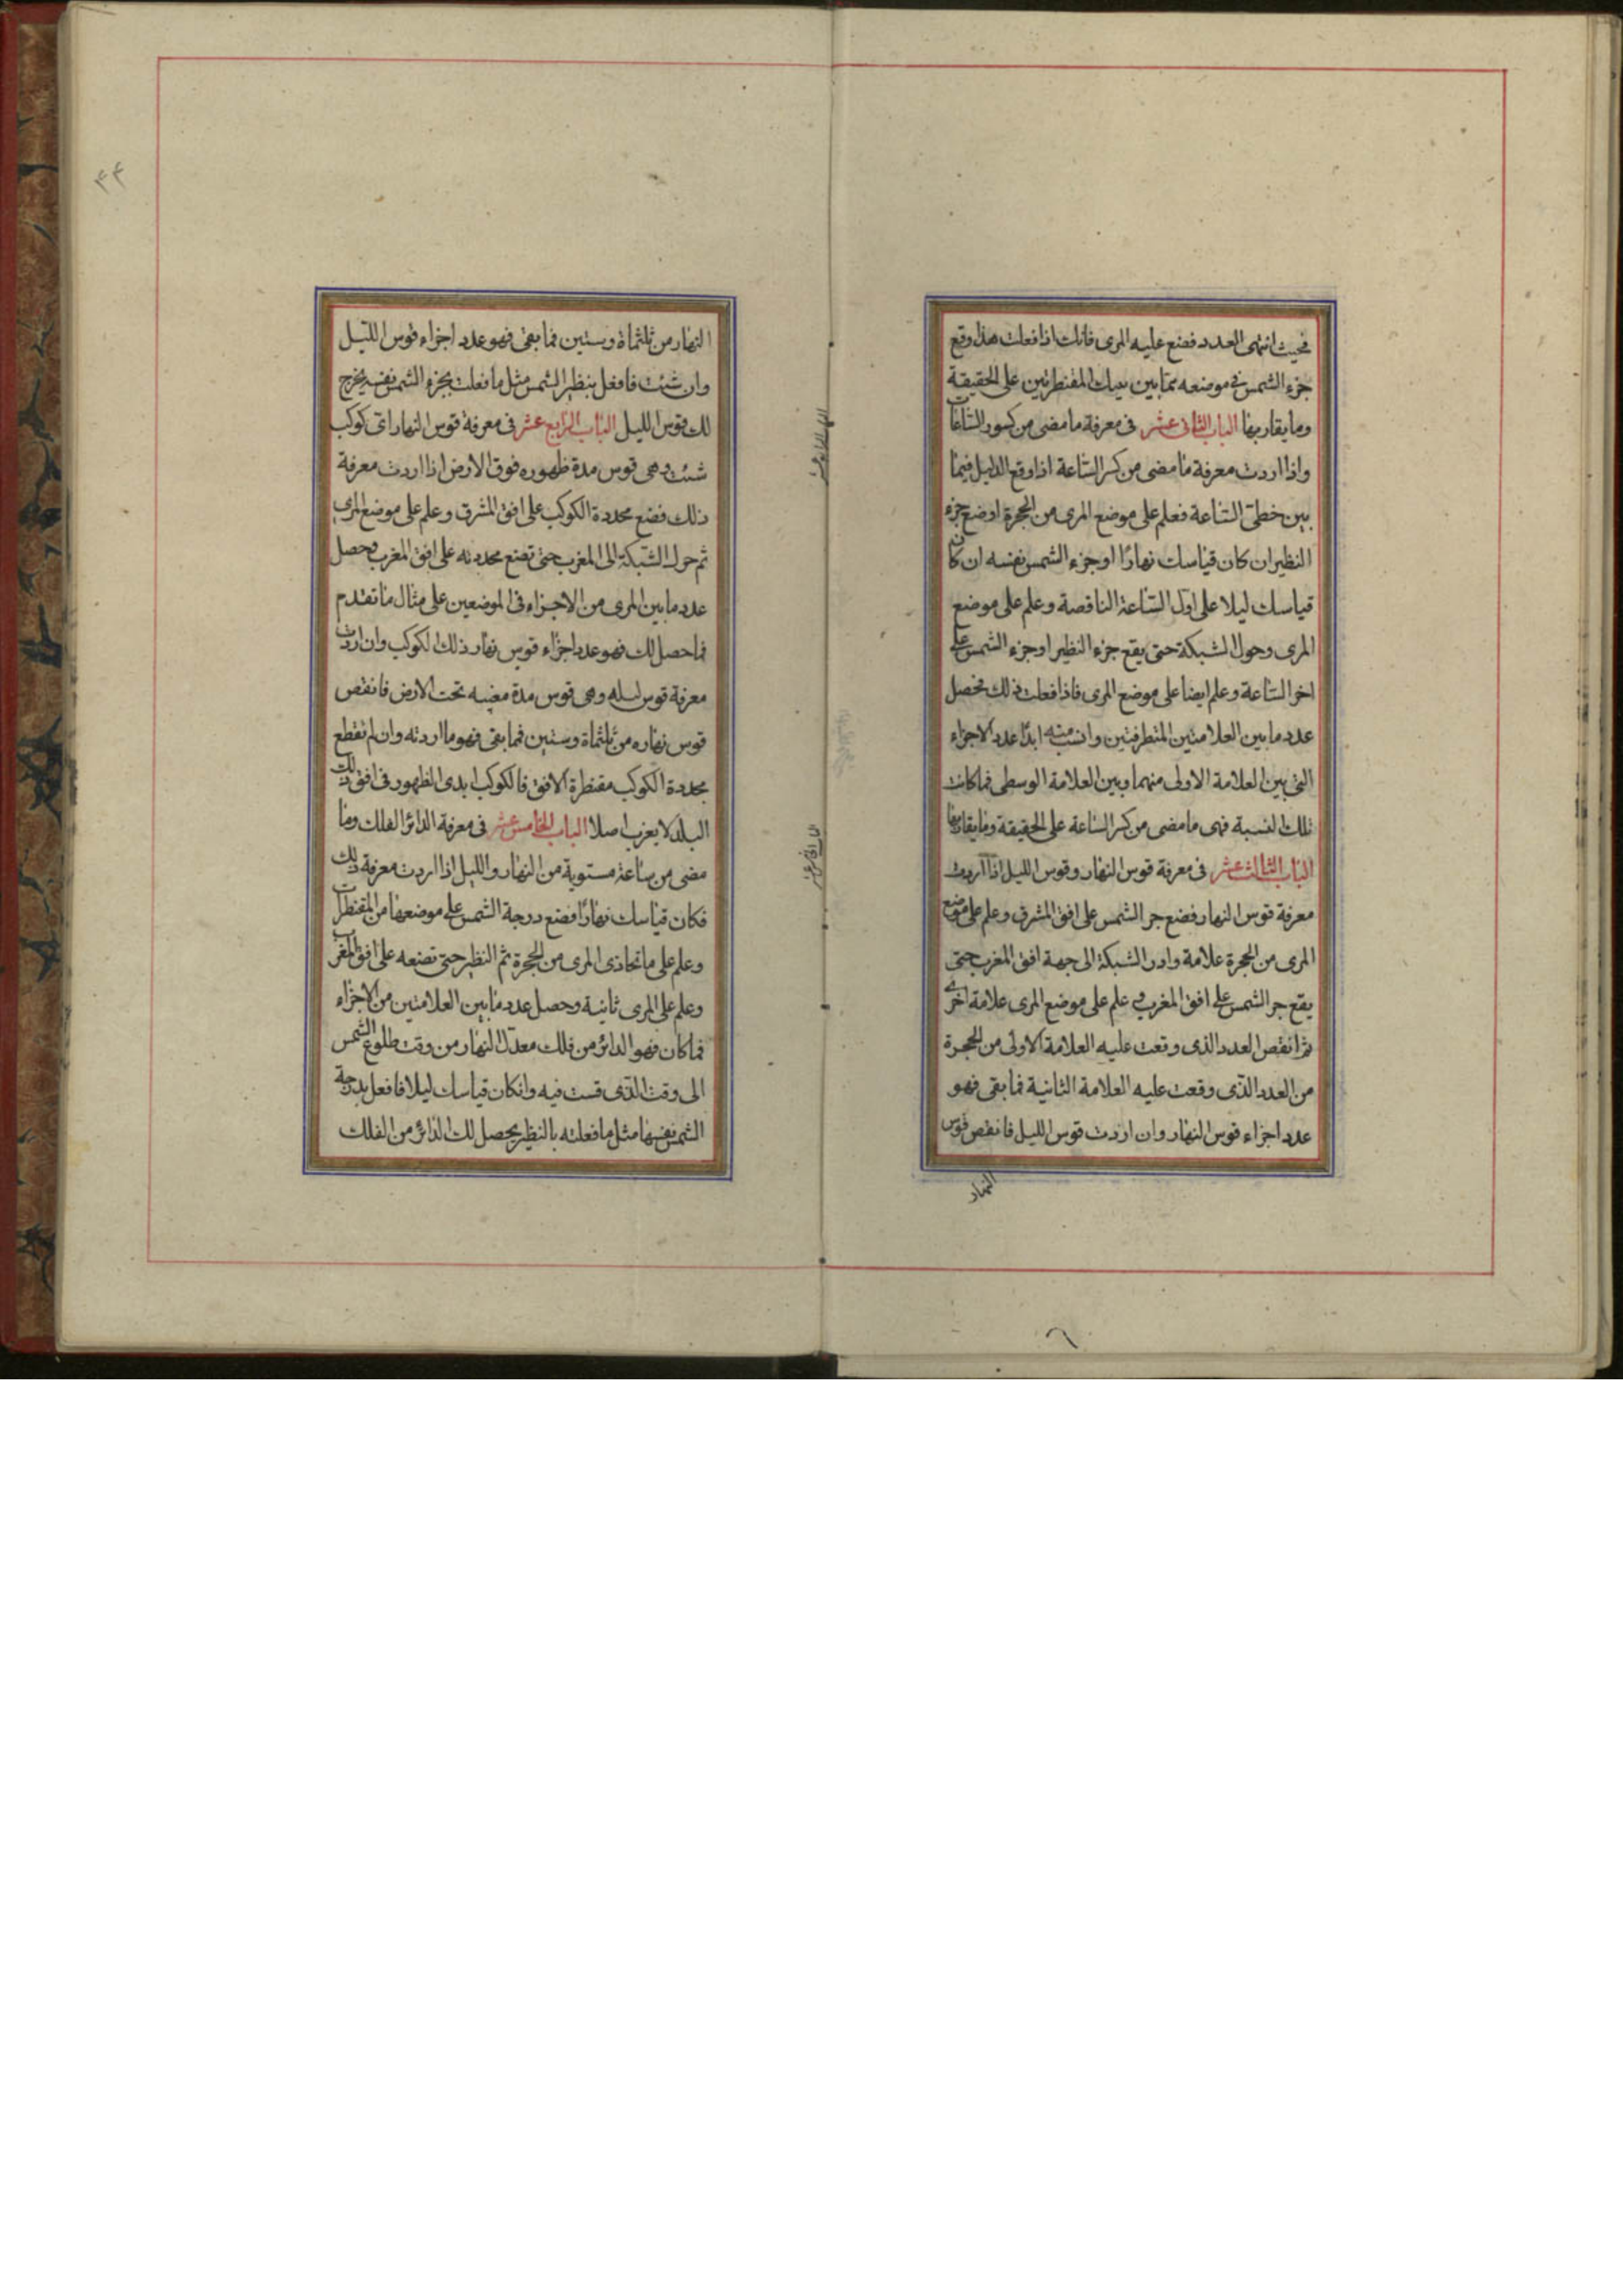 فحيث انتهى العدد فضع عليه المرى فانك اذا فعلت هذا وقع
جزء الشمس فى موضعه مما بين تينك المقنطرتين على الحقيقة
وما يقاربها الباب الثانى عشر فى معرفة ما مضى من كسور الساعات
واذا اردت معرفة ما مضى من كسر الساعة اذا وقع الدليل فيما
بين خطى الساعة فعلم على موضع المرى من الحجرة اوضع جزء
النظير ان كان قياسك نهارًا او جزء الشمس نفسه ان كان
قياسك ليلا على اول الساعة الناقصة وعلم على موضع
المرى وحول الشبكة حتى يقع جزء النظير او جزء الشمس على
اخر الساعة وعلم ايضا على موضع المرى فاذا فعلت ذلك فحصل
عدد ما بين العلامتين المتطرفتين وانسب منه ابدًا عدد الاجزاء
التى بين العلامة الاولى منهما وبين العلامة الوسطى فما كانت
تلك النسبة فهى ما مضى من كسر الساعة على الحقيقة وما يقاربها
الباب الثالث عشر فى معرفة قوس النهار وقوس الليل اذا اردت
معرفة قوس النهار فضع جر الشمس على افق المشرق وعلم على موضع
المرى من الحجرة علامة وادر الشبكة الى جهة افق المغرب حتى
يقع جر الشمس على افق المغرب و علم على موضع المرى علامة اخرى
ثم انقص العدد الذى وقعت عليه العلامة الاولى من الحجرة
من العدد الذى وقعت عليه العلامة الثانية فما بقى فهو
عدد اجزاء قوس النهار وان اردت قوس الليل فانقص قوس
النهار
٤٤
النهار من ثلثماة وستين فما بقى فهو عدد اجزاء قوس الليل
وان شئت فافعل بنظير الشمس مثل ما فعلت بجزء الشمس نفسه يخرج
لك قوس الليل الباب الرابع عشر فى معرفة قوس النهار اى كوكب
شئت وهى قوس مدة ظهوره فوق الارض اذا اردت معرفة
ذلك فضع محددة الكوكب على افق المشرق وعلم على موضع المرى
ثم حول الشبكة الى المغرب حتى تضع محددته على افق المغرب وحصل
عدد ما بين المرى من الاجزاء فى الموضعين على مثال ما تقدم
فما حصل لك فهو عدد اجزاء قوس نهار ذلك الكوكب وان اردت
معرفة قوس ليله وهى قوس مدة مغيبه تحت الارض فانقص
قوس نهاره من ثلثماة وستين فما بقى فهو ما اردته وان لم تقطع
محددة الكوكب مقنطرة الافق فالكوكب ابدى الظهور فى افق ذلك
البلد لا يغرب اصلا الباب الخامس عشر فى معرفة الدائر الفلك وما
مضى من ساعة مستوية من النهار والليل اذا اردت معرفة ذلك
فكان قياسك نهارًا فضع درجة الشمس على موضعها من المقنطرات
وعلم على ما تحاذى المرى من الحجرة ثم النظير حتى تضعه على افق المغرب
وعلم على المرى ثانية وحصل عدد ما بين العلامتين من الاجزاء
فما كان فهو الدائر من فلك معدل النهار من وقت طلوع الشمس
الى وقت الذى قست فيه وانكان قياسك ليلا فافعل بدرجة
الشمس نفسها مثل ما فعلته بالنظير يحصل لك الدائر من الفلك